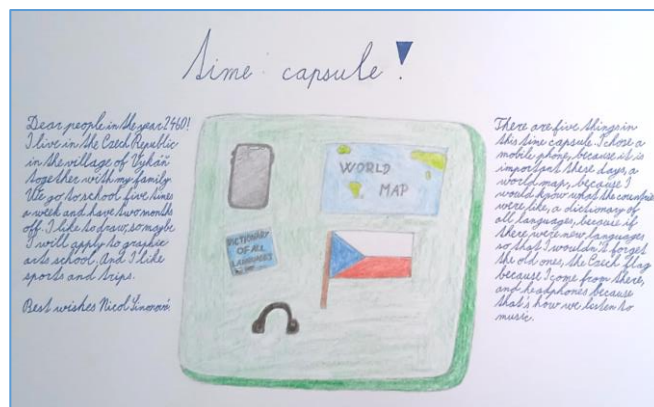 Time capsule!
Dear people in the year 2460!
I live in the Czech Republic
in the village of Vykáň
together with my family.
We go to school five times
a week and have two months
off. I like to draw, so maybe
I will apply to graphic
arts school. And I like
sports and trips.
Best wishes Nicol
WORLD
MAP
DICTIONARY
OF ALL
LANGUAGES
There are five things in
this time capsule. I chose a
mobile phone, because it is
important these days, a
world map, because I
would know what the countries
were like, a dictionary of
all languages, because if
there were new languages
so that I wouldn't forget
the old ones, the Czech flag
because I come from there,
and headphones because
that's how we listen to
music.